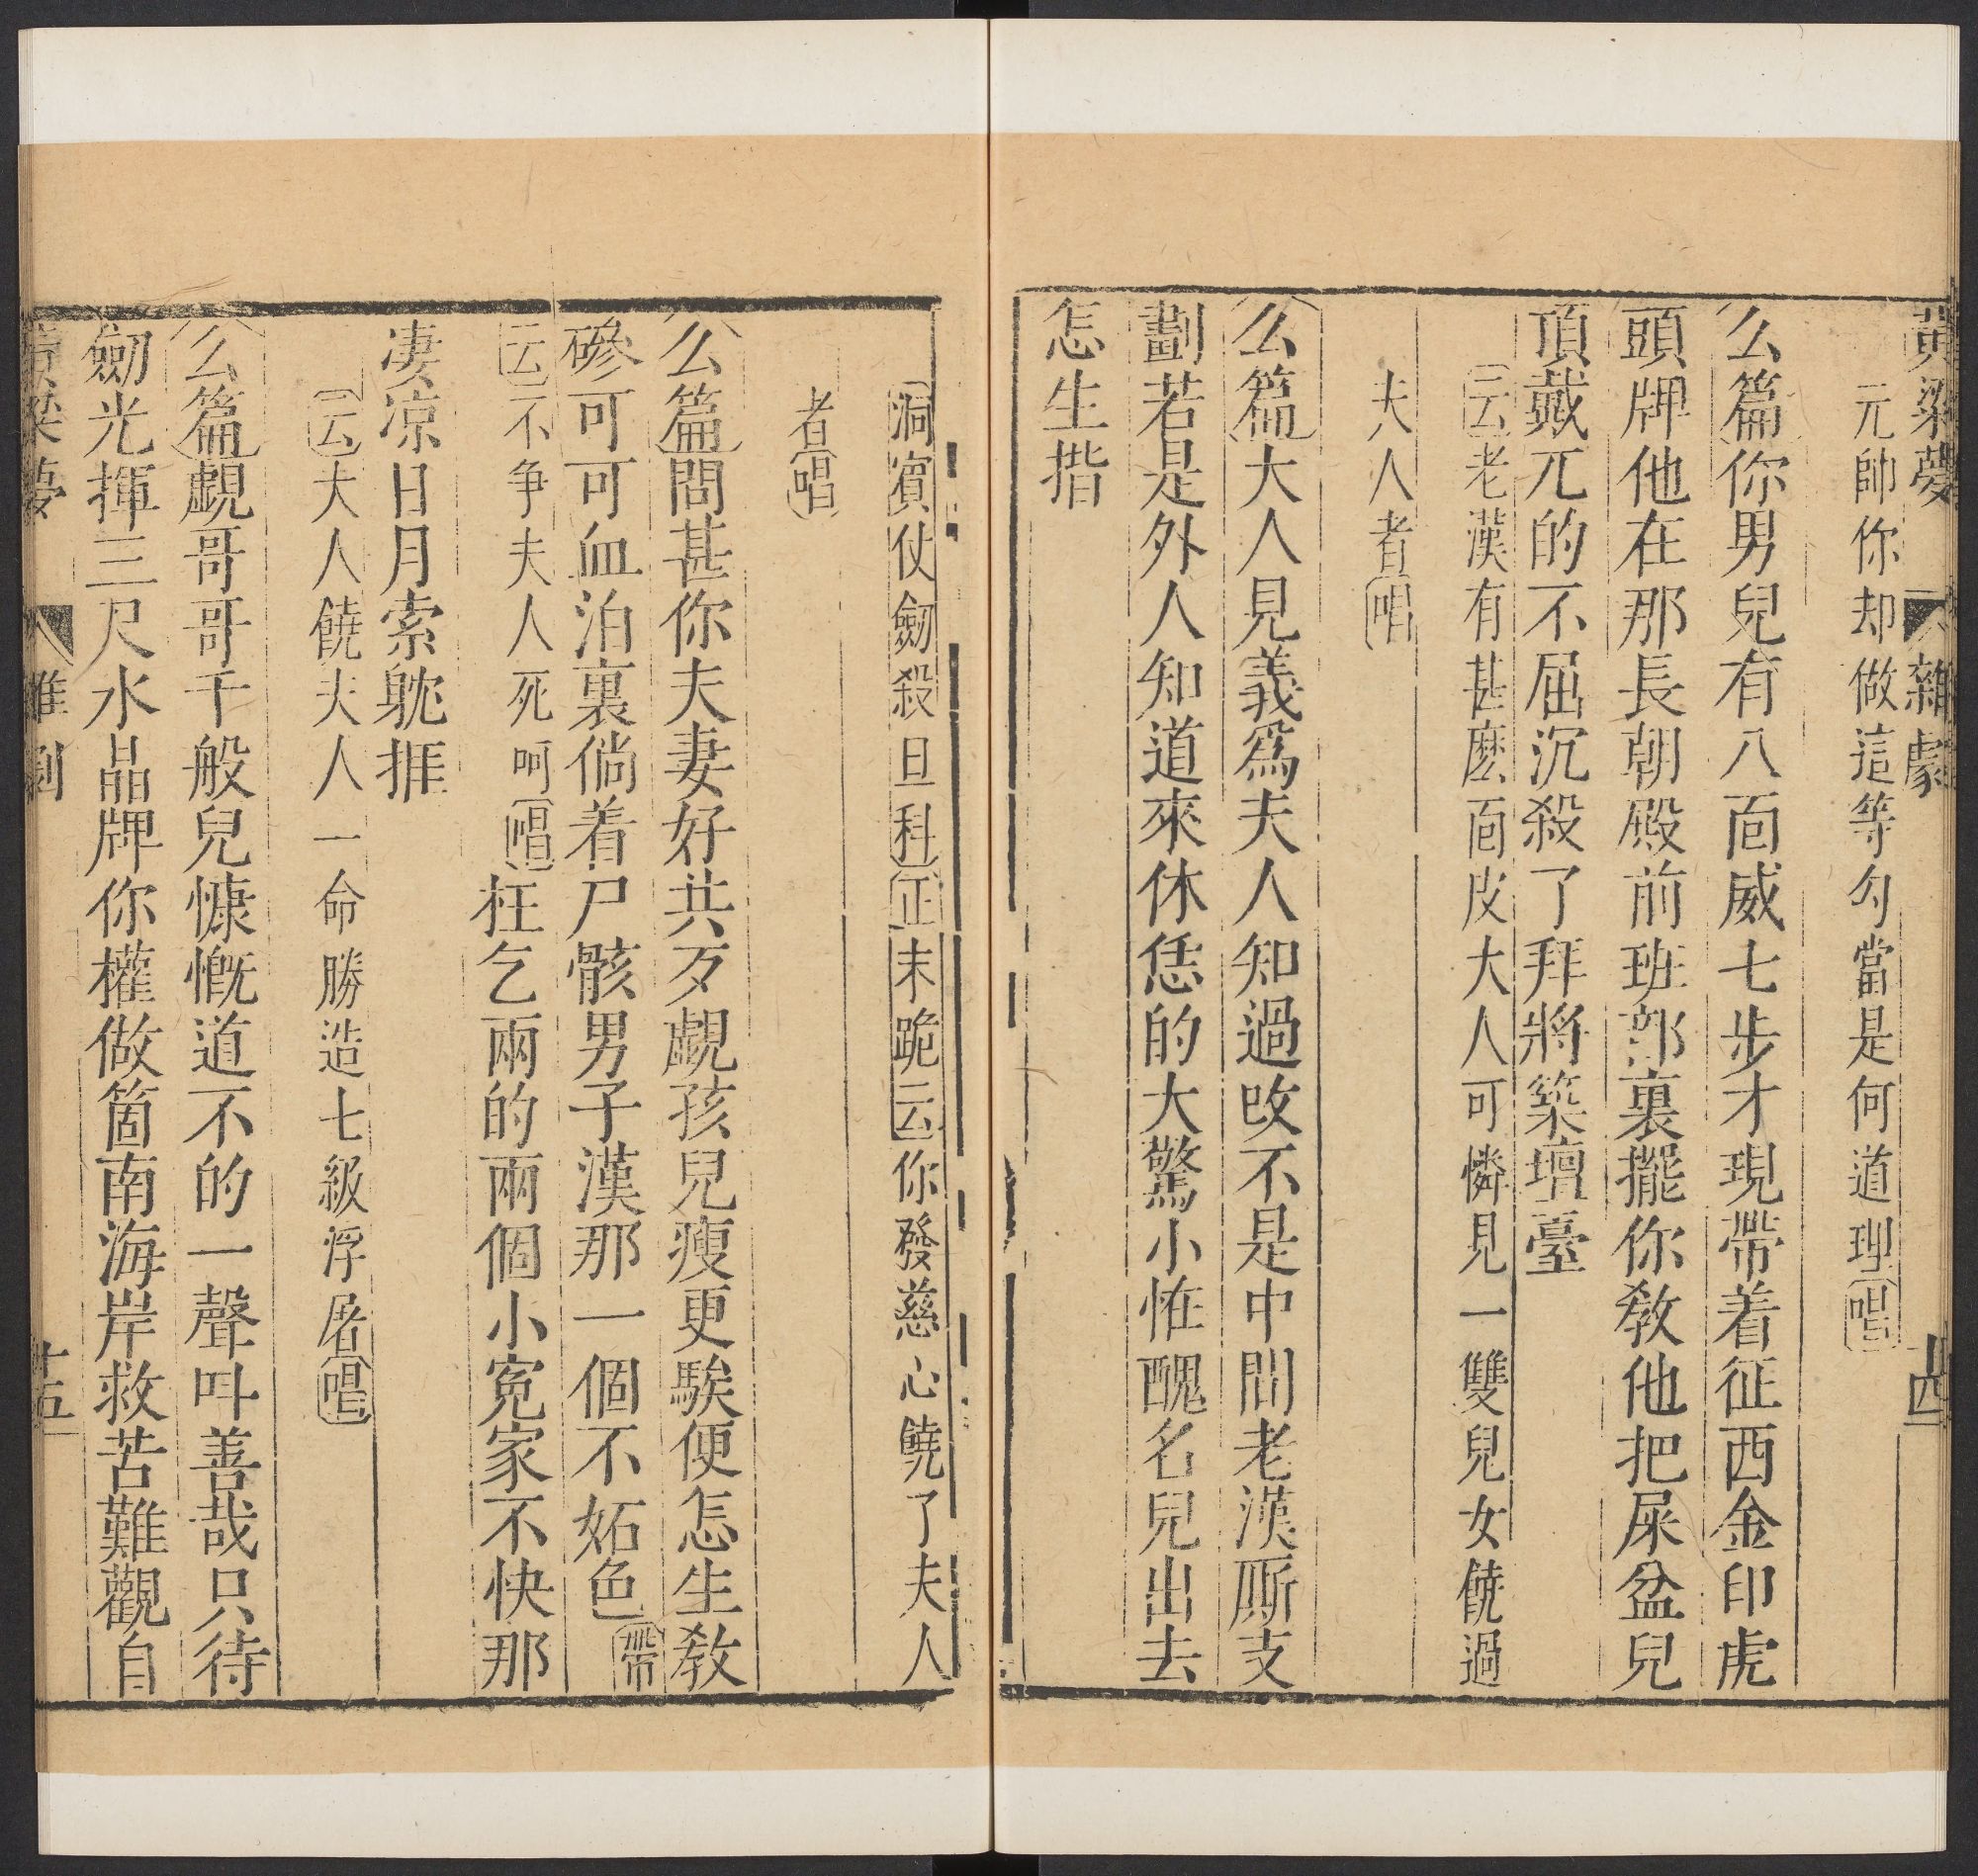 黃粱夢 雜劇 十四
元帥你却做這等勾當是何道理唱
么篇你男兒有八面威七步才現帶着征西金印虎
頭牌他在那長朝殿前班部裏擺你教他把屎盆兒
頂戴兀的不屈沉殺了拜將築壇臺
云老漢有甚麽面皮大人可憐見一雙兒女饒過
夫人者唱
么篇大人見義爲夫人知過改不是中間老漢厮支
劃若是外人知道來休恁的大驚小恠醜名兒出去
怎生揩
洞賓仗劒殺旦科正末跪云你發慈心饒了夫人
者唱
么篇問甚你夫妻好共歹覷孩兒瘦更騃便怎生教
磣可可血泊裏倘着尸骸男子漢那一個不妬色帶
云不争夫人死呵唱枉乞兩的兩個小寃家不快那
凄凉日月索躭捱
云大人饒夫人一命勝造七級浮屠唱
么篇覷哥哥千般兒慷慨道不的一聲呌善哉只待
劒光揮三尺水晶牌你權做箇南海岸救苦難觀自
黃粱夢 雜劇 十五